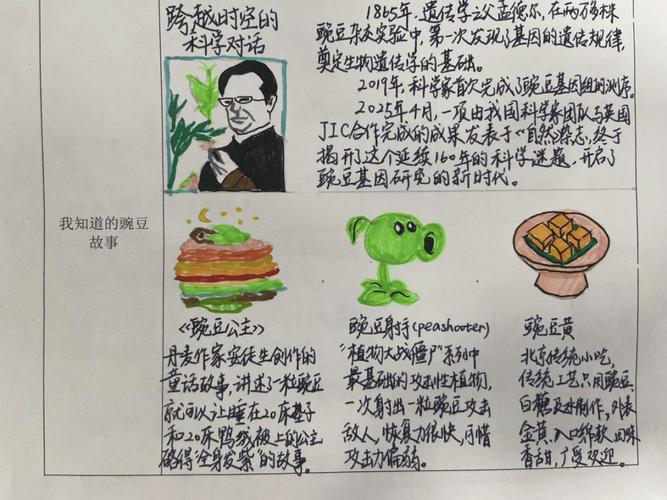 跨越时空的
科学对话
1865年，遗传学之父孟德尔，在两万多株
豌豆杂交实验中，第一次发现了基因的遗传规律，
奠定生物遗传学的基础。
2019年，科学家首次完成了豌豆基因组的测序。
2025年4月，一项由我国科学家团队与英国
JIC合作完成的成果发表于《自然》杂志，终于
揭开了这个延续160年的科学谜题，开启了
豌豆基因研究的新时代。
我知道的豌豆
故事
《豌豆公主》
丹麦作家安徒生创作的
童话故事，讲述了一粒豌豆
就可以让睡在20床垫子
和20床鸭绒被上的公主
硌得“全身发紫”的故事。
豌豆射手(peashooter)
“植物大战僵尸”系列中
最基础的攻击性植物，
一次射出一粒豌豆攻击
敌人，恢复力很快，可惜
攻击力偏弱。
豌豆黄
北京传统小吃，
传统工艺只用豌豆、
白糖及水制作，外表
金黄、入口绵软、回味
香甜，广受欢迎。